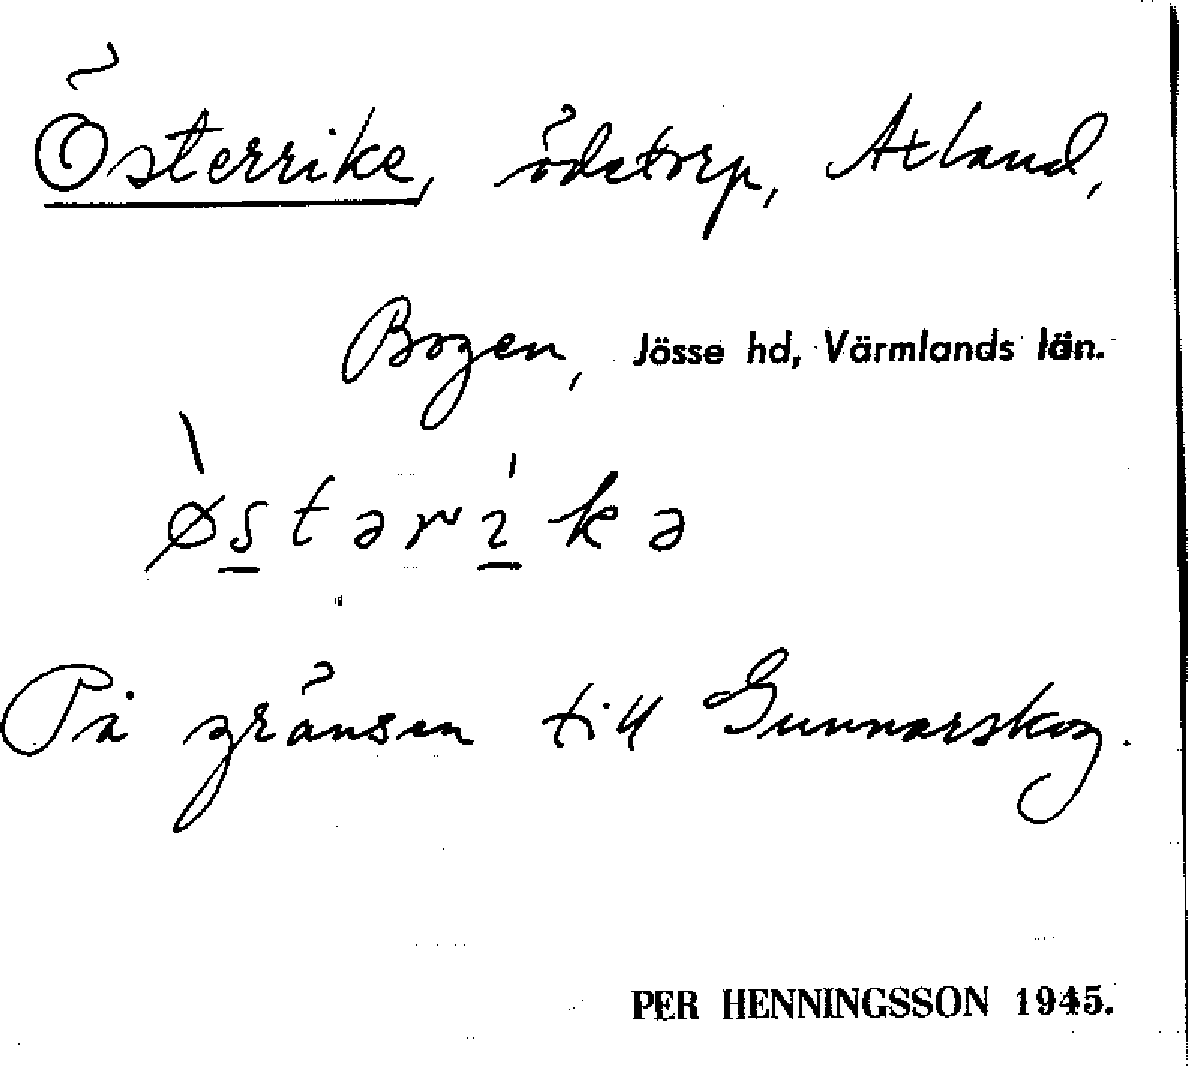 Österrike, ödetorp, Atland,
Bogen, Jösse hd, Värmlands län.
ø̀stəríkə
På gränsen till Gunnarskog.
PER HENNINGSSON 1945.